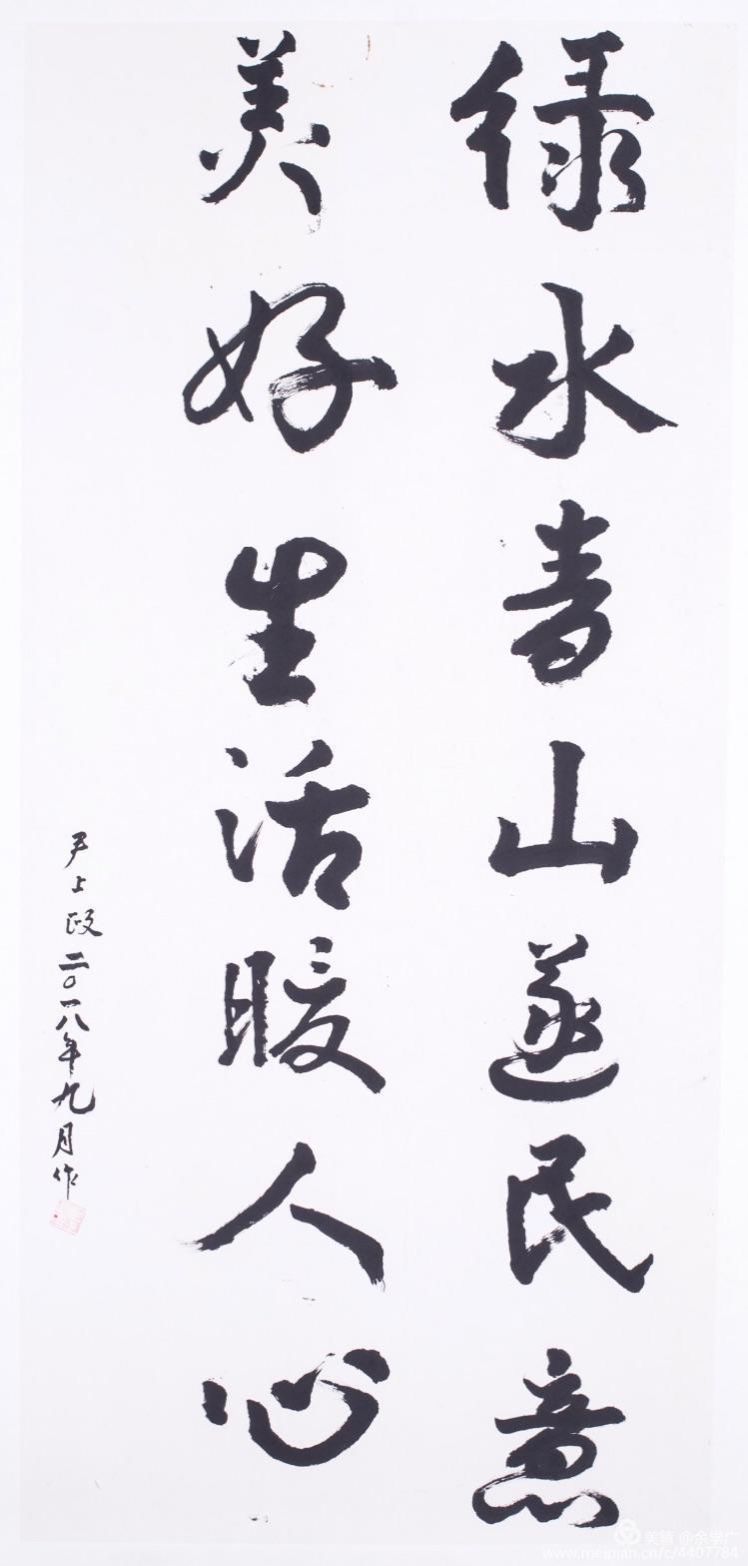 绿水青山遂民意
美好生活暖人心
尹上政二〇一八年九月作
美篇 @余学广
www.meipian.cn/c/4407784